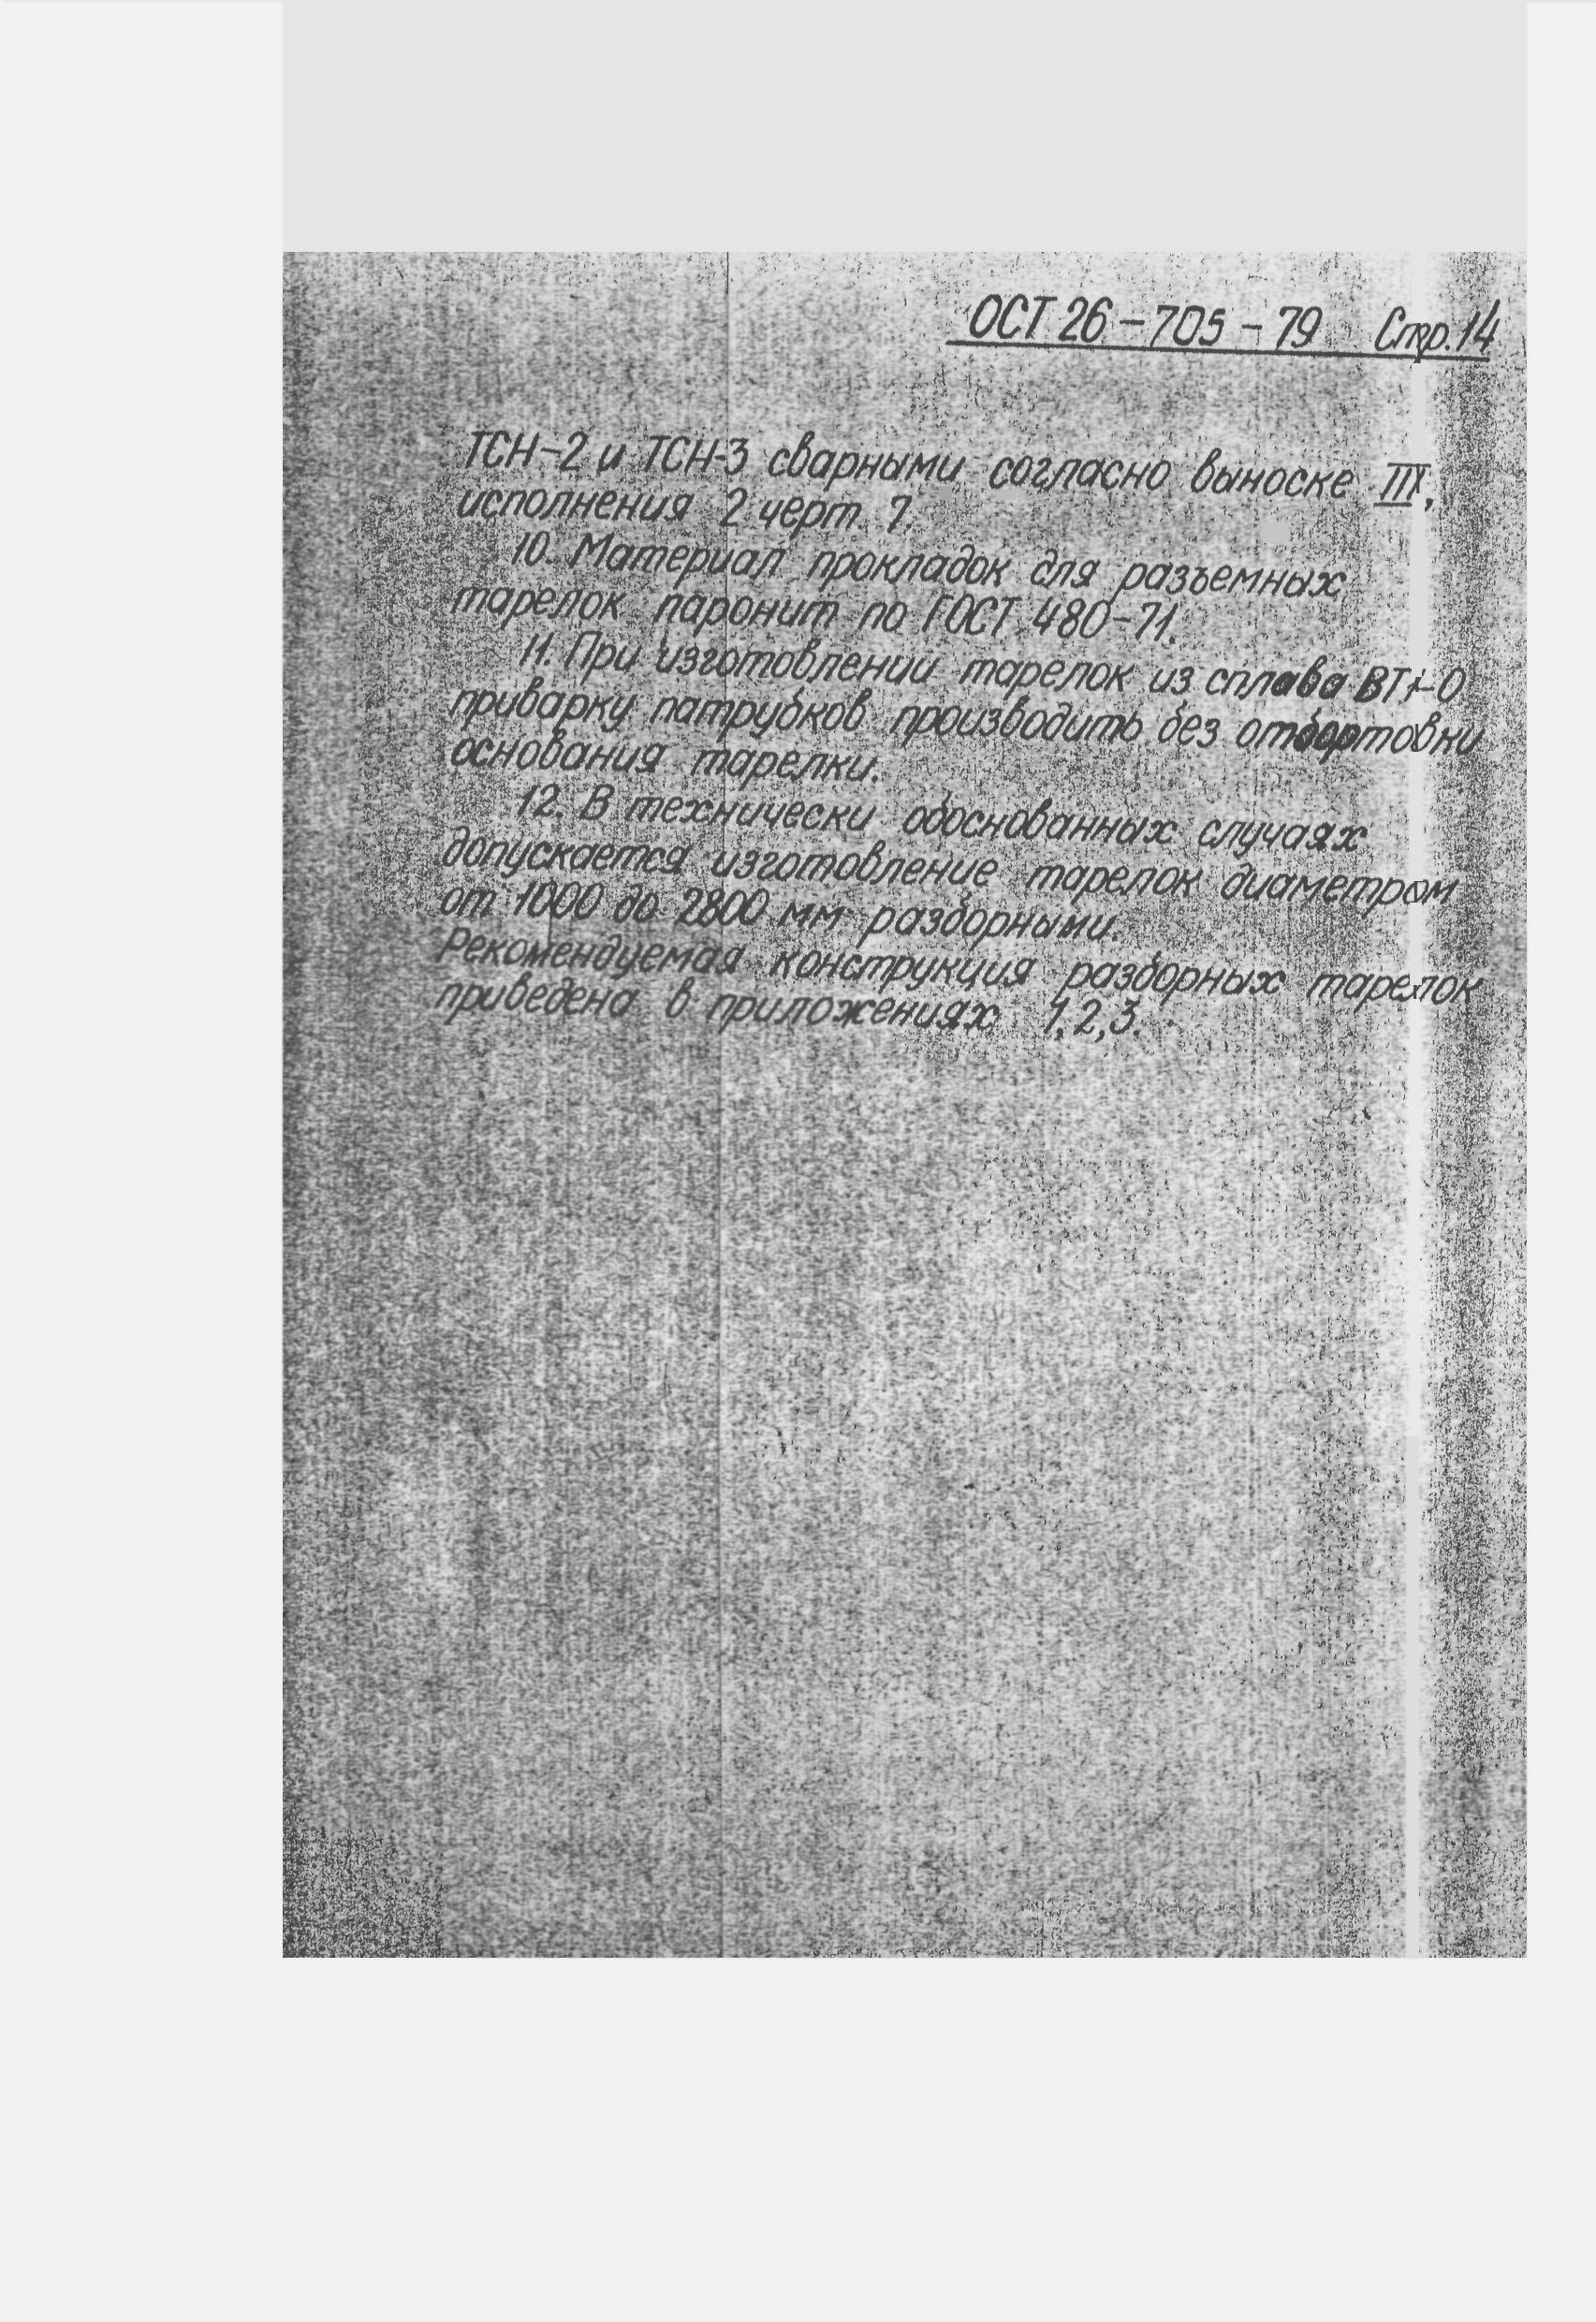 ОСТ 26-705-79 Стр.14
ТСН-2 и ТСН-3 сварными согласно выноске III,
исполнения 2 черт. 7.
10. Материал прокладок для разъемных
тарелок паронит по ГОСТ 480-71.
11. При изготовлении тарелок из сплава ВТ1-0
приварку патрубков производить без отбортовки
основания тарелки.
12. В технически обоснованных случаях
допускается изготовление тарелок диаметром
от 1000 до 2800 мм разборными.
Рекомендуемая конструкция разборных тарелок
приведена в приложениях 1,2,3.